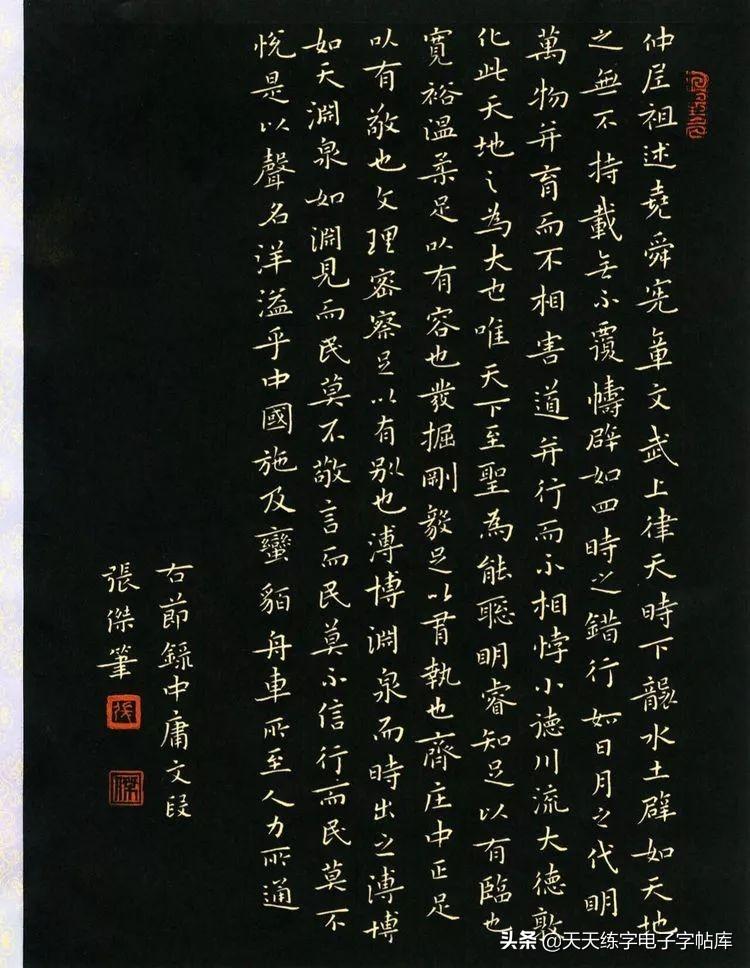 仲尼祖述堯舜憲章文武上律天時下襲水土辟如天地
之無不持載無不覆幬辟如四時之錯行如日月之代明
萬物并育而不相害道并行而不相悖小德川流大德敦
化此天地之為大也唯天下至聖為能聰明睿知足以有臨也
寬裕溫柔足以有容也發掘剛毅足以有執也齊庄中正足
以有敬也文理密察足以有别也溥博淵泉而時出之溥博
如天淵泉如淵見而民莫不敬言而民莫不信行而民莫不
悅是以聲名洋溢乎中國施及蠻貊舟車所至人力所通
右節錄中庸文段
張傑筆
头条 @天天练字电子字帖库